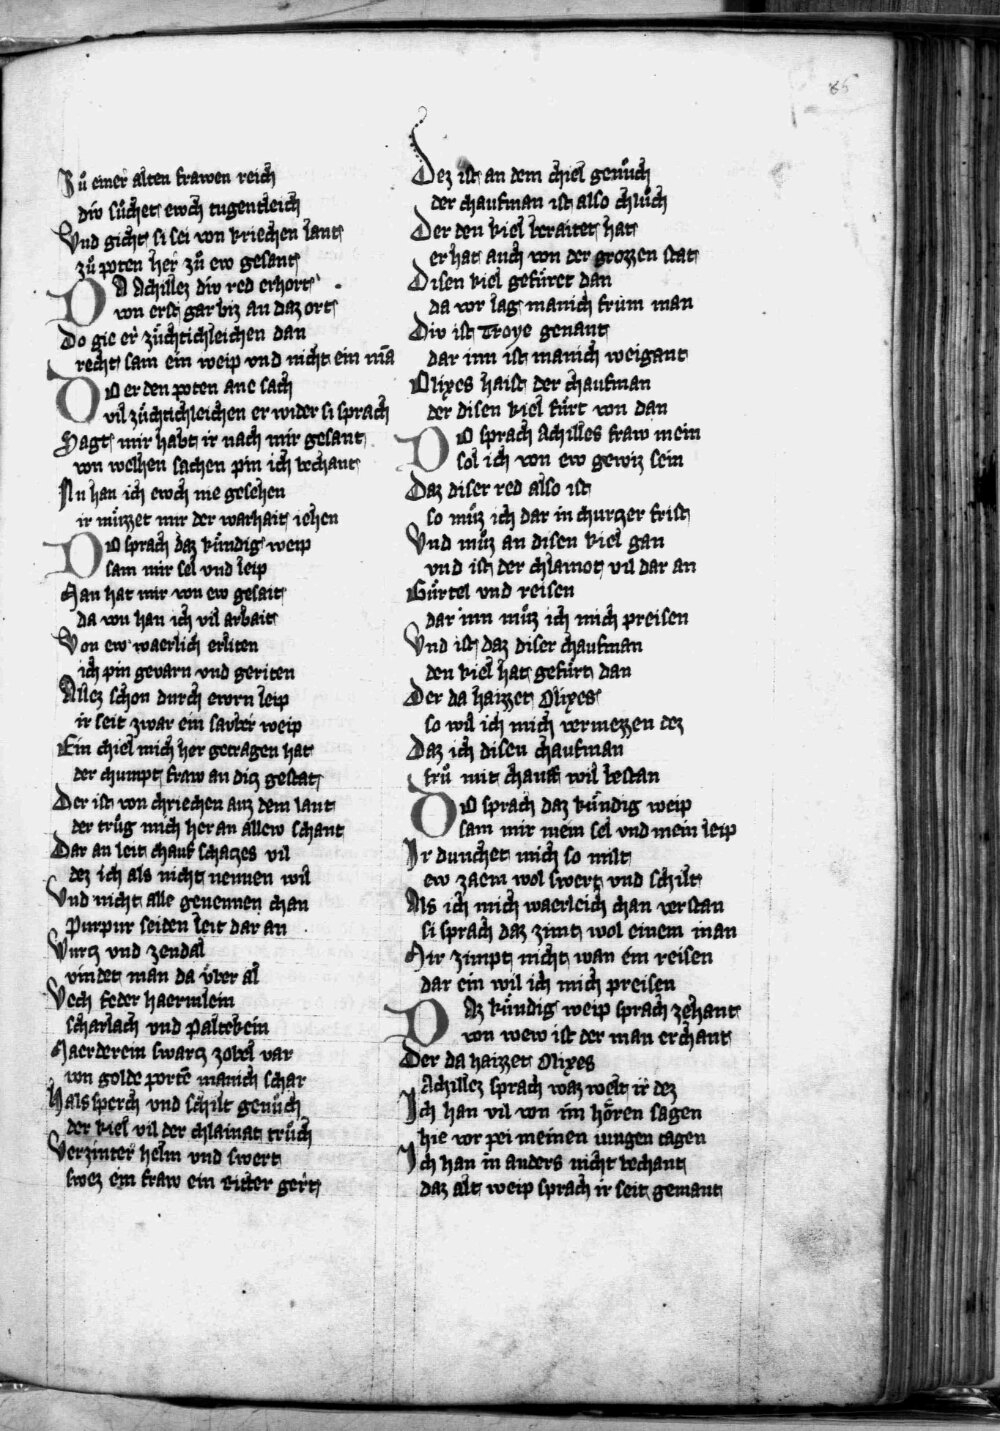 85
Zů einer alten frawen reich
div sůchet ewch tugentleich
Vnd gicht si sei von kriechen lant
zů poten her zů ew gesant
DA Achillez div red erhort
von erst gar biz an daz ort
Do gie er zůchtichleichen dan
recht sam ein weip vnd nicht ein mā
DO er den poten ane sach
vil zůchtichleichen er wider si sprach
Sagt mir habt ir nach mir gesant
von welhen sachen pin ich bechant
Nu han ich ewch nie gesehen
ir můzzet mir der warhait iehen
DO sprach daz kůndig weip
sam mir sel vnd leip
Man hat mir von ew gesait
da von han ich vil arbait
Von ew waerlich erliten
ich pin gevarn vnd geriten
Allez schon durch ewrn leip
ir seit zwar ein sauber weip
Ein chiel mich her getragen hat
der chumpt fraw an diz gestat
Der ist von chriechen auz dem lant
der trůg mich her an allew schant
Dar an leit chauf schatzes vil
dez ich als nicht nennen wil
Vnd nicht alle genennen chan
Purpur seiden leit dar an
Wurtz vnd zendal
vindet man da ůber al
Vech feder haermlein
scharlach vnd paltekein
Maerderein swartz zobel var
von golde portē manich schar
Halsperch vnd schilt genůch
der kiel vil der chlainat trůch
Verzinter helm vnd swert
swez ein fraw ein ritter gert
Dez ist an dem chiel genůch
der chaufman ist also chlůch
Der den kiel beraitet hat
er hat auch von der grozzen stat
Disen kiel gefůret dan
da vor lag manich frům man
Div ist Troye genant
dar inn ist manich weigant
Vlixes haist der chaufman
der disen kiel fůrt von dan
DO sprach Achilles fraw mein
sol ich von ew gewiz sein
Daz diser red also ist
so můz ich dar in churtzer frist
Vnd můz an disen kiel gan
vnd ist der chlainot vil dar an
Gůrtel vnd reisen
dar inn můz ich mich preisen
Vnd ist daz diser chaufman
den kiel hat gefůrt dan
Der da haizzet Olixes
so wil ich mich vermezzen dez
Daz ich disen chaufman
frů mit chauff wil bestan
DO sprach daz kůndig weip
sam mir mein sel vnd mein leip
Ir dunchet mich so milt
ew zaem wol swert vnd schilt
Als ich mich waerleich chan verstan
si sprach daz zimt wol einem man
Mir zimpt nicht wan ein reisen
dar ein wil ich mich preisen
DAz kůndig weip sprach zehant
von wew ist der man erchant
Der da haizzet Olixes
Achillez sprach waz welt ir dez
Ich han vil von im hôren sagen
hie vor pei meinen iungen tagen
Ich han in anders nicht bechant
daz alt weip sprach ir seit gemant